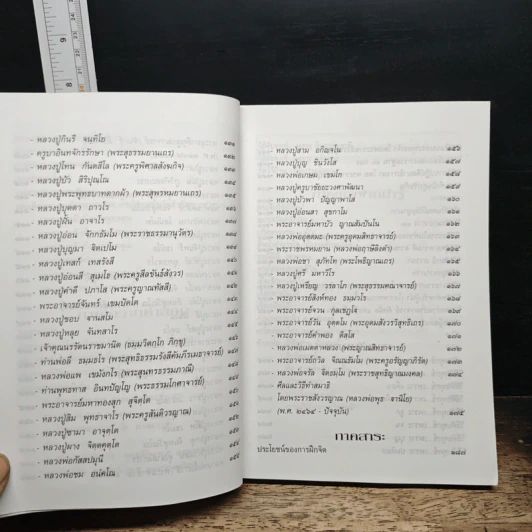 - หลวงปู่กินรี จนฺทิโย
- ครูบาอินทจักรรักษา (พระสุธรรมยานเถร)
- หลวงปู่โทน กันตสีโล (พระครูพิศาลสังฆกิจ)
- หลวงปู่บัว สิริปุณโณ
- หลวงปู่พระพุทธบาทตากผ้า (พระสุพรหมยานเถร)
- หลวงปู่บุดดา ถาวโร
- หลวงปู่ฝั้น อาจาโร
- หลวงปู่อ่อน จักกธัมโม (พระราชธรรมานุวัตร)
- หลวงปู่บุญมา จิตเปโม
- หลวงปู่เทสก์ เทสรังสี
- หลวงปู่อ่อนสี สุเมโธ (พระครูสีลขันธ์สังวร)
- หลวงปู่คำดี ปภาโส (พระครูญาณทัสสี)
- พระอาจารย์จันทร์ เขมปัตโต
- หลวงปู่ชอบ ฐานสโม
- หลวงปู่หลุย จันทสาโร
- เจ้าคุณนรรัตนราชมานิต (ธมฺมวิตกฺโก ภิกฺขุ)
- ท่านพ่อลี ธมฺมธโร (พระสุทธิธรรมรังสีคัมภีรเมธาจารย์)
- หลวงพ่อแพ เขมังกโร (พระสุนทรธรรมภาณี)
- ท่านพุทธทาส อินทปัญโญ (พระธรรมโกศาจารย์)
- พระอาจารย์มหาทองสุก สุจิตโต
- หลวงปู่สิม พุทธาจาโร (พระครูสันติวรญาณ)
- หลวงปู่ชามา อาจุตโต
- หลวงปู่ผาง จิตตคุตโต
- หลวงพ่อกัสสปมุนี
- หลวงพ่อชม อนังคโณ
- หลวงปู่สาม อกิญจโน ๑๕๖
- หลวงปู่บุญ ชินวังโส ๑๕๗
- หลวงพ่อเกษม เขมโก ๑๕๘
- หลวงปู่ครูบาชัยยะวงศาพัฒนา ๑๕๙
- หลวงปู่บัวพา ปัญญาพาโส ๑๖๐
- หลวงปู่อ่อนสา สุขกาโม ๑๖๑
- พระอาจารย์มหาบัว ญาณสัมปันโน ๑๖๒
- หลวงพ่ออุตตมะ (พระครูอุดมสิทธาจารย์)
- พระราชพรหมยาน (หลวงพ่อฤาษีลิงดำ)
- หลวงพ่อชา สุภัทโท (พระโพธิญาณเถร)
- หลวงปู่ศรี มหาวีโร
- หลวงปู่เหรียญ วรลาโภ (พระสุธรรมคณาจารย์)
- พระอาจารย์สิงห์ทอง ธมฺมวโร
- พระอาจารย์จวน กุลเชฏฺโฐ
- พระอาจารย์วัน อุตฺตโม (พระอุดมสังวรวิสุทธิเถร) ๑๗๐
- พระอาจารย์คำพอง ติสโส
- หลวงพ่อเมตตาหลวง (พระญาณสิทธาจารย์)
- พระอาจารย์ถวิล จิณณธัมโม (พระครูอรัญญาภิรัต)
- หลวงพ่อจรัล จิตธมฺโม (พระราชสุทธิญาณมงคล) ๑๗๔
- ศีลและวิธีทำสมาธิ
โดยพระราชสังวรญาณ (หลวงพ่อพุธ ฐานิโย)
(พ.ศ. ๒๔๖๔ - ปัจจุบัน) ๑๗๕
ภาคสาระ
ประโยชน์ของการฝึกจิต ๑๘๗